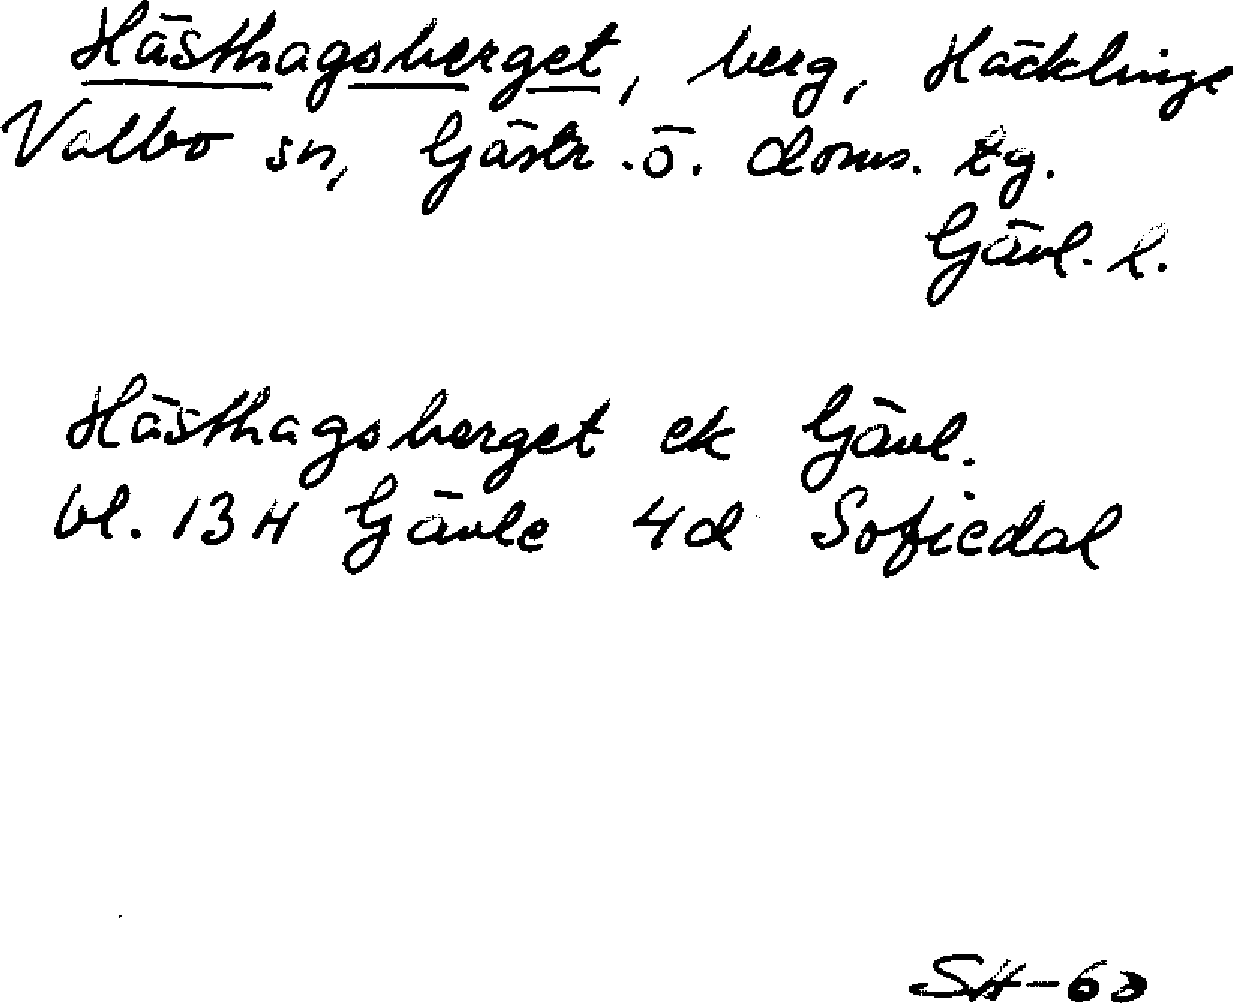 Hästhagsberget, berg, Häcklinge
Valbo sn, Gästr. ö. doms. tg.
Gävl. l.
Hästhagsberget ek Gävl.
bl. 13 H Gävle 4d Sofiedal